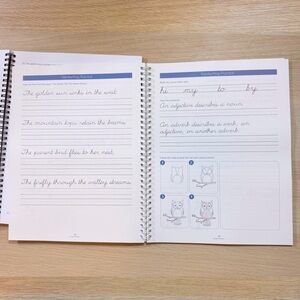 Handwriting Practice
The golden sun sinks in the west
The mountain tops retain the beams
The parent bird flies to her nest
The firefly through the valley streams
Handwriting Practice
hi my to by
An adjective describes a noun.
An adverb describes a verb, an
adjective, or another adverb.
1 2
3 4